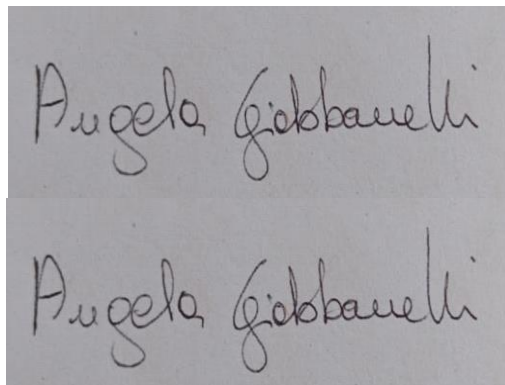 Angela Giobbanelli
Angela Giobbanelli